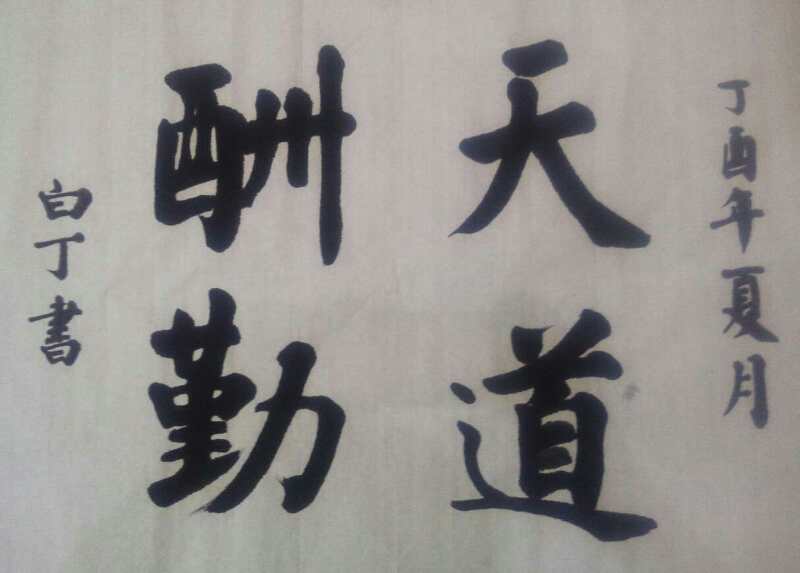 丁酉年夏月
天道
酬勤
白丁書